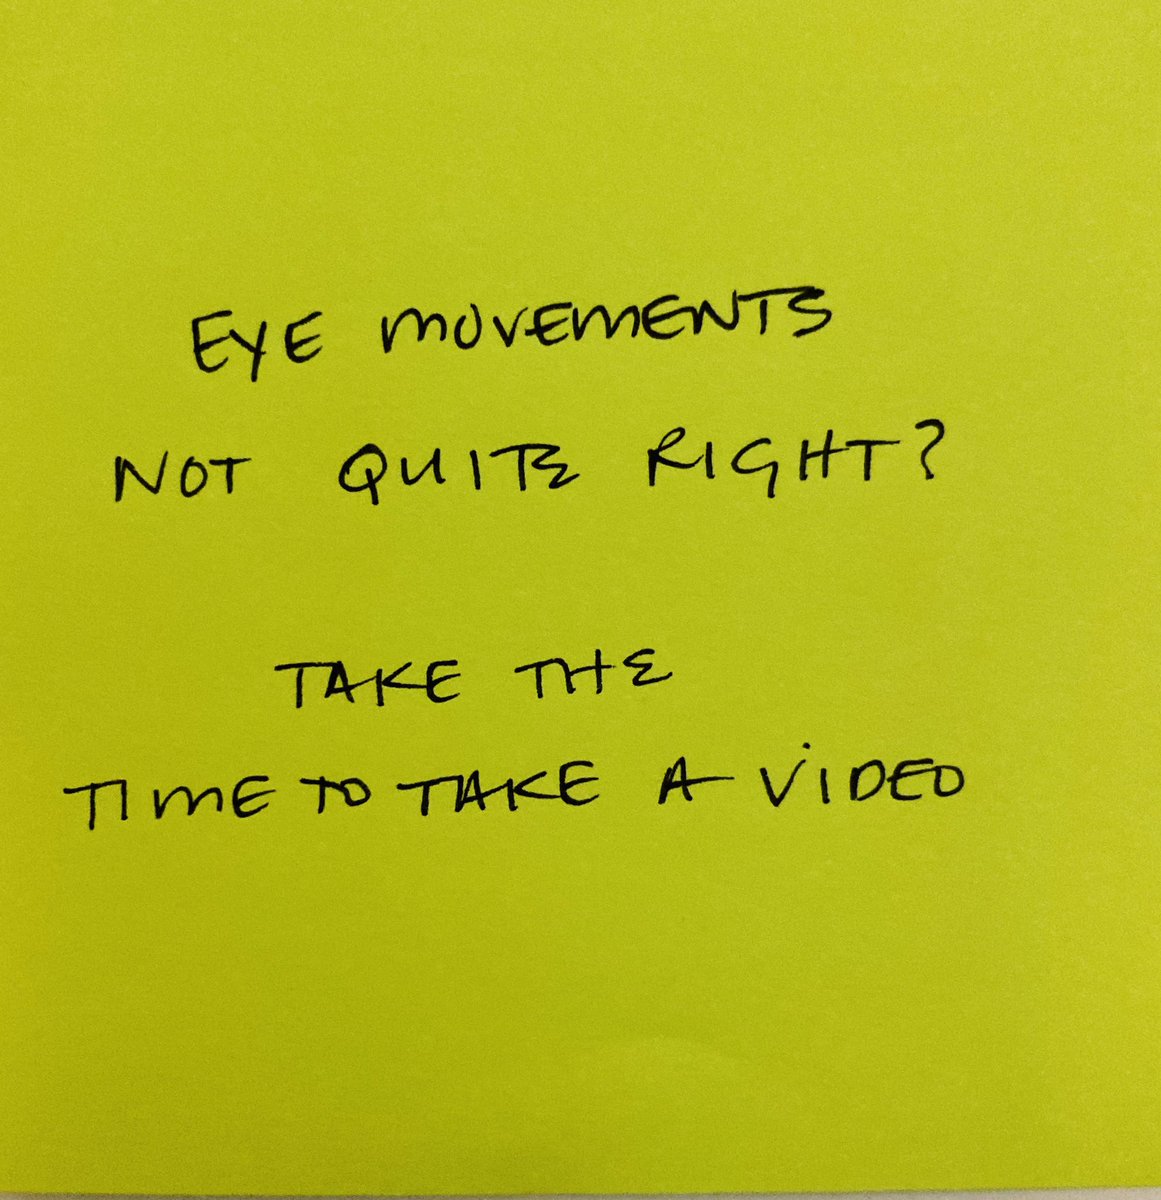 EYE MOVEMENTS
NOT QUITE RIGHT?
TAKE THE
TIME TO TAKE A VIDEO